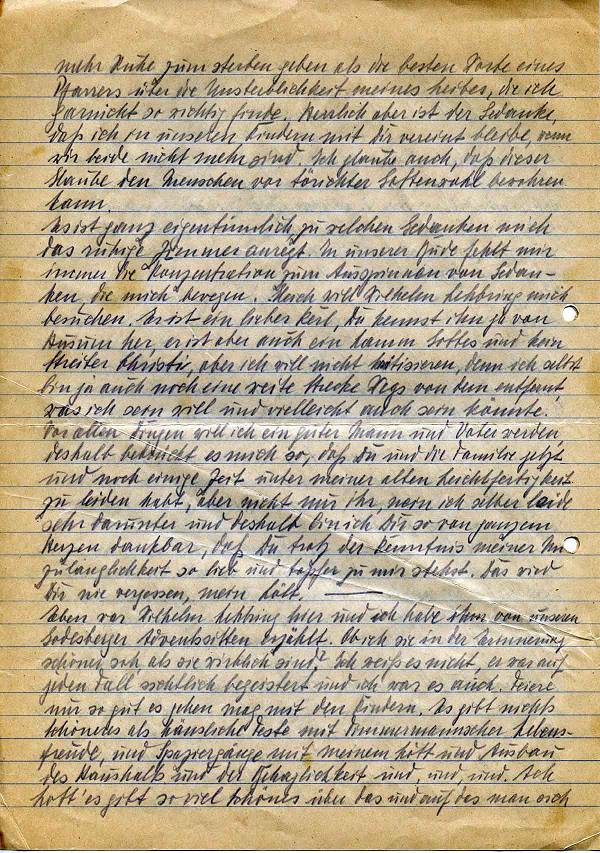 mehr Ruhe zum sterben geben als die besten Worte eines
Pfarrers über die Unsterblichkeit meines Leibes, die ich
garnicht so wichtig finde. Herrlich aber ist der Gedanke,
daß ich in unseren Kindern mit Dir vereint bleibe, wenn
wir beide nicht mehr sind. Ich glaube auch, daß dieser
Glaube den Menschen vor törichter Gottenwahl bewahren
kann.
Es ist ganz eigentümlich zu welchen Gedanken mich
das ruhige Zimmer anregt. In unserer Bude fehlt mir
immer die Konzentration zum Ausspinnen von Gedan-
ken, die mich bewegen. Gleich will Wilhelm mich
besuchen. Es ist ein lieber Kerl, Du kennst ihn ja von
Husum her, er ist aber auch ein Lamm Gottes und kein
Streiter Christi, aber ich will nicht kritisieren, denn ich selbst
bin ja auch noch eine weite Strecke Wegs von dem entfernt,
was ich sein will und vielleicht auch sein könnte.
Vor allen Dingen will ich ein guter Mann und Vater werden,
deshalb bedrückt es mich so, daß Du und die Familie jetzt
und noch einige Zeit unter meiner alten Leichtfertigkeit
zu leiden habt, aber nicht nur ihr, nein ich selber leide
sehr darunter und deshalb bin ich Dir so von ganzem
Herzen dankbar, daß Du trotz der Kenntnis meiner Un-
zulänglichkeit so lieb und tapfer zu mir stehst. Das wird
Dir nie vergessen, mein
Eben war Wilhelm hier und ich habe ihm von unseren
Godesberger Adventssitten erzählt. Ob ich sie in der Erinnerung
schöner seh als sie wirklich sind? Ich weiß es nicht, er war auf
jeden Fall sichtlich begeistert und ich war es auch. Feiere
nur so gut es gehen mag mit den Kindern. Es gibt nichts
schöneres als häusliche Feste mit Timmermannscher Lebens-
freude, und Spaziergänge mit meinem und Ausbau
des Haushalts und der Behaglichkeit und, und, und. Ach
Gott es gibt so viel schönes über das und auf das man sich